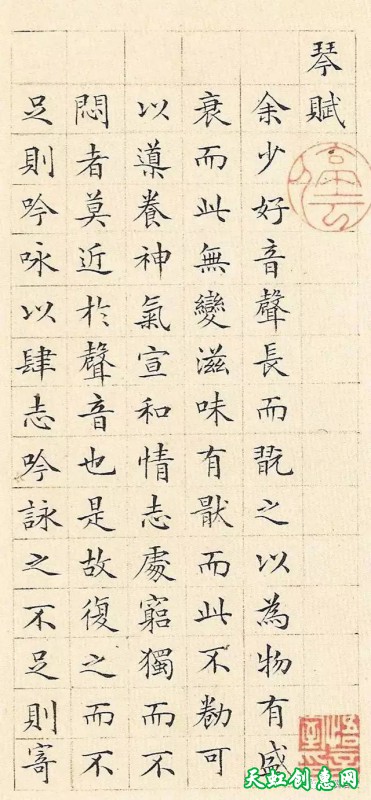 琴賦
余少好音聲長而翫之以為物有盛
衰而此無變滋味有猒而此不勌可
以導養神氣宣和情志處窮獨而不
悶者莫近於聲音也是故復之而不
足則吟咏以肆志吟詠之不足則寄
天虹创惠网